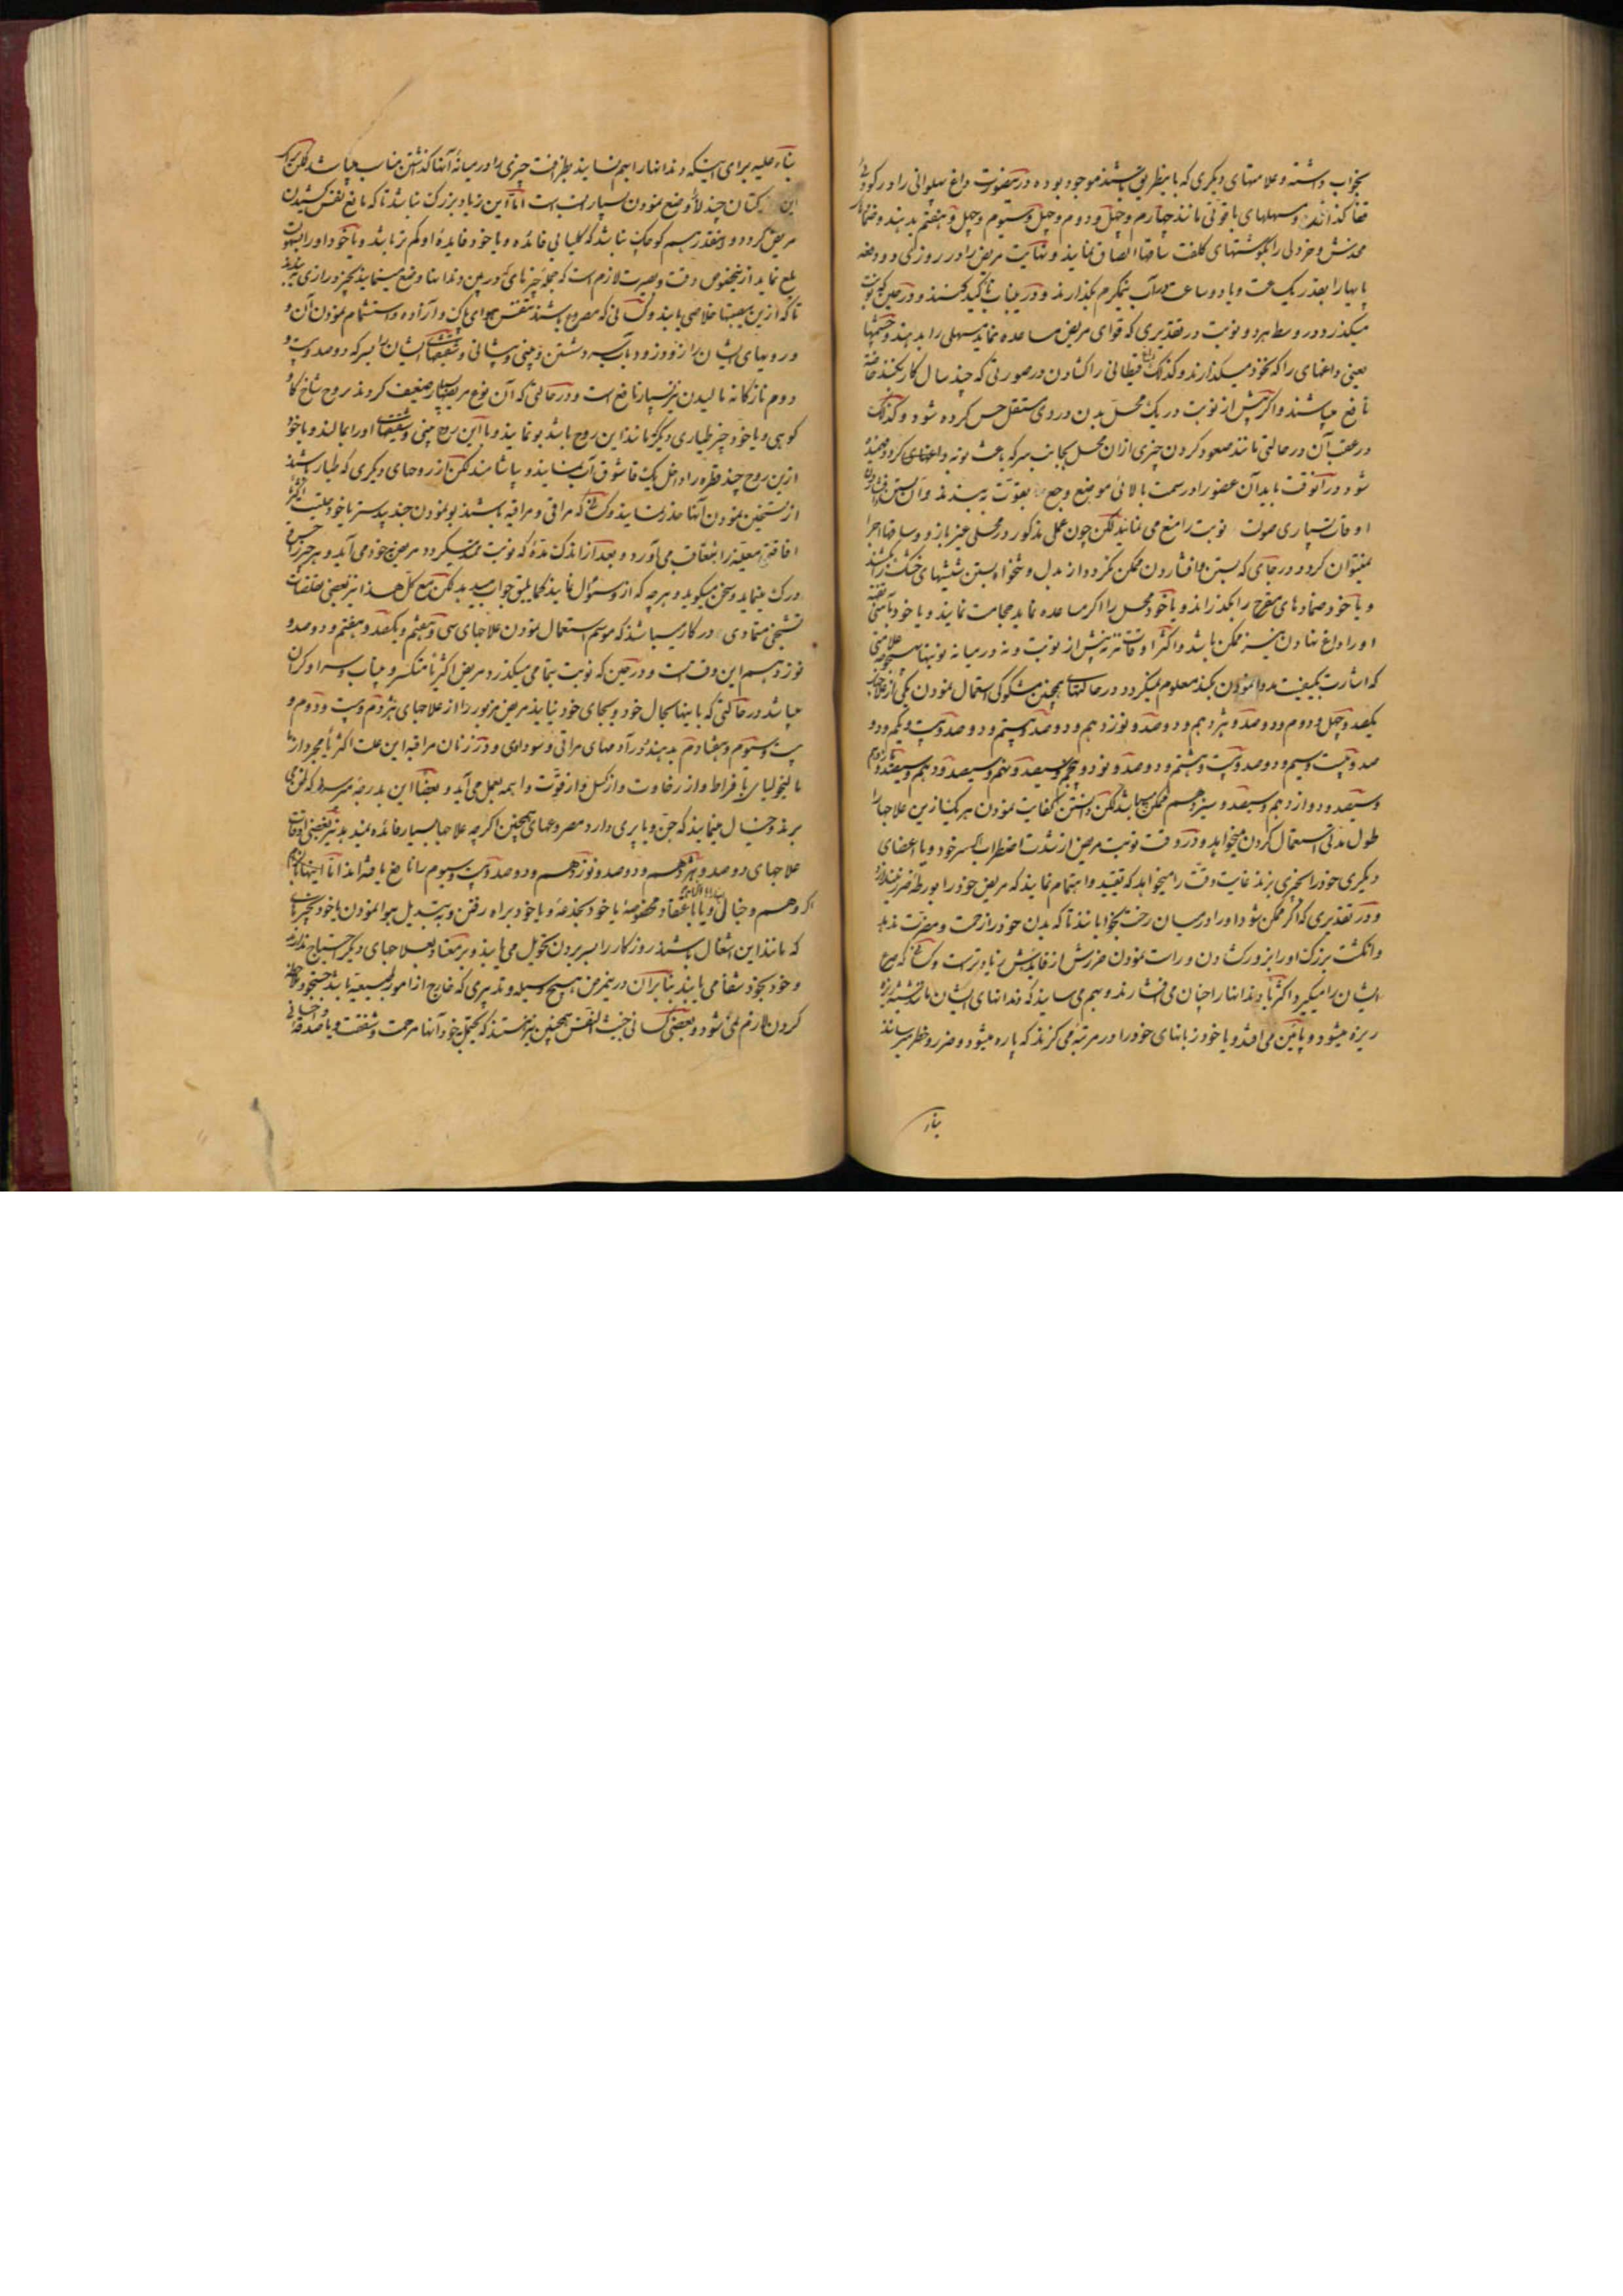 بخواب داشته و علامتهای دیگری که باینطریق باشند موجود بوده درینصورت داغ پهلوانی را در
قفا کذاشته و مسهلهای با قوتی مانند چهارم و چهل و دوم و چهل و سیوم و چهل و هفتم بدهند و
محدش و خردلی را بکوشتهای کلفت ساقها الصاق نمایند و نهایت مریض را در روزی دو دفعه
پایها را بقدر یک ساعت و یا دو ساعت در آب نیمکرم بکذارند و در
میکذرد در وسط هر دو نوبت در تقدیری که قوای مریض مساعده نماید مسهلی را بدهند و
یعنی داغهای را که بخود میکذارند و کذلک قیطانی را کشادن در صورتی که چند سال کار بکند
نافع میباشند و اکر پیش از نوبت در یک محل بدن در روی مستقل حس کرده شود و کذلک
در عقب آن در حالتی مانند صعود کردن چیزی از آن محل بجانب سر که باعث نوبه و
شود در آنوقت باید آن عضو را در سمت بالائی موضع وجع بقوت به بندند و آن بستن
اوقات بسیاری نوبت را منع می نماید لکن چون عمل مذکور در محلی غیر بازو و ساقها اجرا
نمیتوان کرد و در جای که بستن و افشاردن ممکن نکردد از بدل و شیشهای خشک را
و یا خود ضمادهای مفرح را بکذرانند و یا خود محل را اکر مساعده نماید حجامت نمایند و یا خود
او را داغ نهادن نیز ممکن باشد و اکثر اوقات نه پیش از نوبت و نه در میانه نوبتها
که اشارت بکیفیت مداوا نمودن بکند معلوم نمیکردد در حالتهای همچنین مشکوکی استعمال نمودن یکی از
یکصد و چهل و دوم و دو صد و هژدهم و دو صد و نوزدهم و دو صد و بیستم و دو صد و بیست و یکم و دو
صد و بیست و سیم و دو صد و بیست و هشتم و دو صد و نود و پنجم و سیصد و نهم و سیصد و دهم و سیصد
و سیصد و دوازدهم و سیصد و سیزدهم ممکن میباشد لکن دانستن کفایت نمودن هر یک ازین علاجها را
طول مدتی استعمال کردن میخواهد و در وقت نوبت مریض از شدت اضطراب سر خود و یا اعضای
دیکری خود را بچیزی بزند غایت دقت را میخواهد که تقیید و اهتمام نمایند که مریض خود را بورطه ضرر
و در تقدیری که اکر ممکن شود او را در میان رخت بخوابانند تا که بدن خود را زحمت و مضرت ندهد
و انکشت بزرک او را بزور کشادن و راست نمودن ضررش از فایدش زیادتر است و کسانی که صرع
ایشان را میکیرد اکثریا دندانها را چنان می فشارند و بهم می سایند که دندانهای ایشان
ریزه میشود و پائین می افتد و یا خود زبانهای خود را در مرتبه می کزند که پاره میشود و ضرر و خطر میرسانند
بناء
بناء علیه برای اینکه دندانها را بهم نسایند بطرافت چیزی را در میانه آنها کذاشتن مناسب میباشد لکن
این کتان چند لا وضع نمودن بسیار انسب است اما این زیاد بزرک نباشد تا که مانع نفس کشیدن
مریض کردد و اینقدر هم کوچک نباشد که کلیا بی فائده و یا خود فایدهٔ او کم تر باشد و یا خود او را
بلع نماید ازینخصوص دقت و بصیرت لازم است که جمله چیزهای که در بین دندانها وضع مینمایند بچیز درازی
تا که ازین مصیبتها خلاصی یابند و کسانی که مصروع باشند تنفس هوای پاک و آزاده و استشمام نمودن آن و
و رویهای ایشان را زود زود بآب سرد شستن و بینی و پیشانی و شقیقهای ایشان را بسرکه دو صد و بیست و
دوم نازکانه مالیدن نیز بسیار نافع است و در حالتی که آن نوع مریضها بسیار ضعیف کردند روح شاخ کاو
کوهی و یا خود چیز طیاری دیکر که مانند این روح باشد بو نمایند و با این روح بینی و شقیقهای او را بمالند و یا خود
ازین روح چند قطره را داخل یک قاشوق آب نمایند و بیاشامند لکن از روحای دیکری که طیار باشند
از تسخین نمودن آنها حذر نمایند و کسانی که مراقی و مراقیه باشند بو نمودن جند بیدستر یا خود حلتیت
افاقتی معینه را بتعاقب می آورد و بعد از اندک مدة که نوبت ممتد میکردد مریض بخود می آید و هر چیز را
درک مینماید و سخن میکوید و هر چه که از او سئوال نمایند کما یلیق جواب میدهد لکن مع کل هذا نیز بعضی تقلصات
تشنجی متمادی در کار میباشد که موسم استعمال نمودن علاجهای سی و هفتم و یکصد و هفتم و دو صد و
نوزدهم این وقت است و در حین که نوبت بتمامی میکذرد مریض اکثریا منکسر و بیتاب و سر او کران
میباشد در حالتی که باینها بحال خود و بجای خود نیایند مریض مزبور را از علاجهای هژدهم و بیست و دوم و
بیست و سیوم و هفتادم بدهند در آدمهای مراقی و سوداوی و در زنان مراقیه این علت اکثریا مجرد از
مالیخولیای با فراط و از رخاوت و از کسل و از قوت واهمه بعمل می آید و بعضا این بدرجه میرسد که
برند و خیال مینمایند که جن و یا پری دارد و مصروعهای همچنین اکر چه علاجها بسیار فائده نمیدهد نیز بعضی اوقات
علاجهای دو صد و هژدهم و دو صد و نوزدهم و دو صد و بیست و سیوم را نافع یافته اند اما
اکر وهم و خیال و یا باعتقاد مخصوصه یا خود بخدعه و یا خود براه رفتن و به تبدیل هوا نمودن یا خود بچیزهای
که مانند این اشغال باشند روزکار را بسر بردن تحویل می یابند و بر معتاد بعلاجهای دیکر احتیاج ندارند
و خود بخود شفا می یابند بنابران درینمرض هیچ وسیله و تدبیری که خارج از امور طبیعیه باشد جستجو و
کردن لازم نمی شود و بعضی کسانی خبیث النفس همچنین نیز هستند که بجهة بخود آنها مرحمت و شفقت و یا صدقه